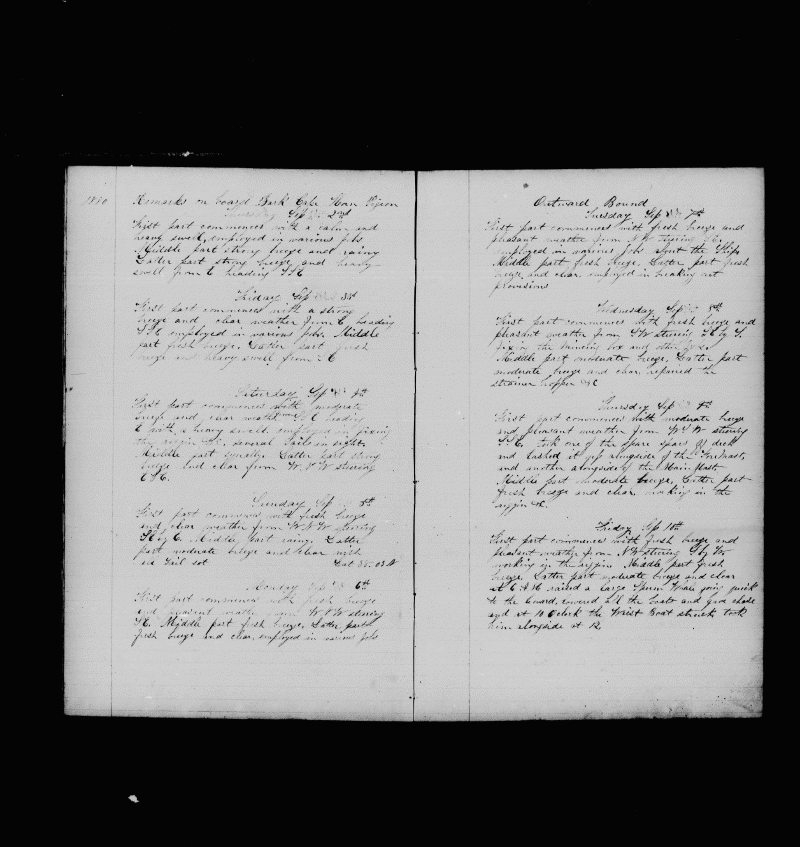 1880 Remarks on board Bark Cape Horn Pigeon
Thursday Sep 2nd
First part commences with a calm and
heavy swell, employed in various jobs.
Middle part stry breeze and rainy
Latter part strong breeze and heavy
swell from E heading SSE
Friday Sep 3d
First part commences with a strong
breeze and clear weather from E heading
SSE employed in various jobs. Middle
part fresh breeze. Latter part fresh
breeze and heavy swell from E
Saturday Sep 4th
First part commences with moderate
breeze and clear weather E heading
E with a heavy swell, employed in fixing
the riggin &c, several sails in sight.
Middle part squally. Latter part strong
breeze and clear from W.S.W steering
ESE.
Sunday Sep 5th
First part commences with fresh breeze
and clear weather from W.N.W steering
SE by E. Middle part rainy. Latter
part moderate breeze and clear with
all sail sot Lat 38.03 N
Monday Sep 6th
First part commences with fresh breeze
and pleasent weather from W.S.W steering
SE. Middle part fresh breeze. Latter part
fresh breeze and clear, employed in various jobs
Outward Bound
Tuesday Sep 7th
First part commences with fresh breeze and
pleasant weather from N.W steering
employed in various jobs about the Ship.
Middle part fresh breeze. Latter part fresh
breeze, and clear employed in breaking out
provisions
Wednesday Sep 8th
First part commences with fresh breeze and
pleasant weather from SW steering SE by S.
fixin the mincing box and other jobs
Middle part moderate breeze, Latter part
moderate breeze and clear, repaired the
strainer hopper &C
Thursday Sep 9th
First part commences with moderate breeze
and pleasant weather from W.S.W steering
SSE. took one of the spare spars off deck
and lashed it up alongside of the Foremast,
and another alongside of the Main Mast.
Middle part moderate breeze, Latter part
fresh breeze and clear, working in the
riggin &c.
Friday Sep 10th
First part commences with fresh breeze and
pleasant weather from N.W steering S by W
working in the riggin Middle part fresh
breeze. Latter part moderate breeze and clear
at 6 A M raised a large Sperm Whale going quick
to the Leward, lowered all the boats and gave chase
and at 10 Oclock the Waist Boat struck took
him alongside at 12.